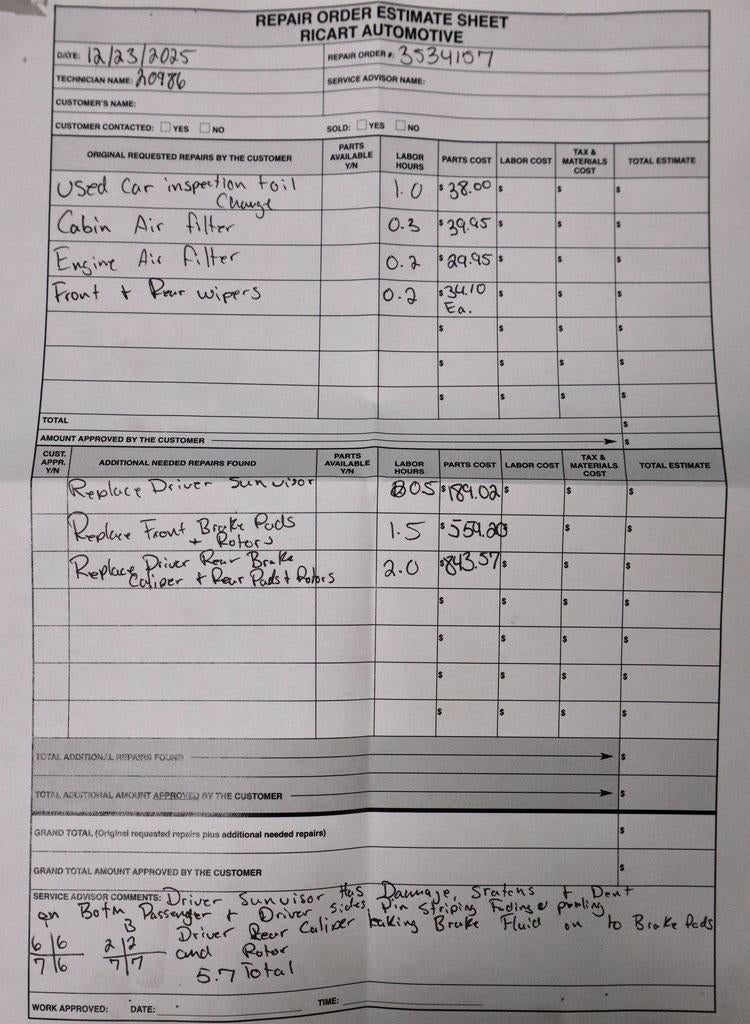 REPAIR ORDER ESTIMATE SHEET
RICART AUTOMOTIVE
DATE: 12/23/2025 REPAIR ORDER #: 3534107
TECHNICIAN NAME: 20986 SERVICE ADVISOR NAME:
CUSTOMER'S NAME:
CUSTOMER CONTACTED: YES NO SOLD: YES NO
ORIGINAL REQUESTED REPAIRS BY THE CUSTOMER PARTS AVAILABLE Y/N LABOR HOURS PARTS COST LABOR COST TAX & MATERIALS COST TOTAL ESTIMATE
Used Car inspection + oil Change 1.0 $38.00 $ $ $
Cabin Air filter 0.3 $39.95 $ $ $
Engine Air Filter 0.2 $29.95 $ $ $
Front + Rear wipers 0.2 $34.10 Ea. $ $ $
$ $ $ $
$ $ $ $
$ $ $ $
TOTAL $
AMOUNT APPROVED BY THE CUSTOMER $
CUST. APPR. Y/N ADDITIONAL NEEDED REPAIRS FOUND PARTS AVAILABLE Y/N LABOR HOURS PARTS COST LABOR COST TAX & MATERIALS COST TOTAL ESTIMATE
Replace Driver Sunvisor 0.5 $189.02 $ $ $
Replace Front Brake Pads + Rotors 1.5 $559.20 $ $ $
Replace Driver Rear Brake Caliper + Rear Pads + Rotors 2.0 $843.57 $ $ $
$ $ $ $
$ $ $ $
$ $ $ $
$ $ $ $
TOTAL ADDITIONAL REPAIRS FOUND $
TOTAL ADDITIONAL AMOUNT APPROVED BY THE CUSTOMER $
GRAND TOTAL (Original requested repairs plus additional needed repairs) $
GRAND TOTAL AMOUNT APPROVED BY THE CUSTOMER $
SERVICE ADVISOR COMMENTS: Driver Sunvisor Has Damage, Sratchs + Dent
on Both Passenger + Driver sides, Pin striping Fading + peeling
Driver Rear Caliper leaking Brake Fluid on to Brake Pads
and Rotor
6 6 3
7 6 2 2
7 7
5.7 Total
WORK APPROVED: DATE: TIME: